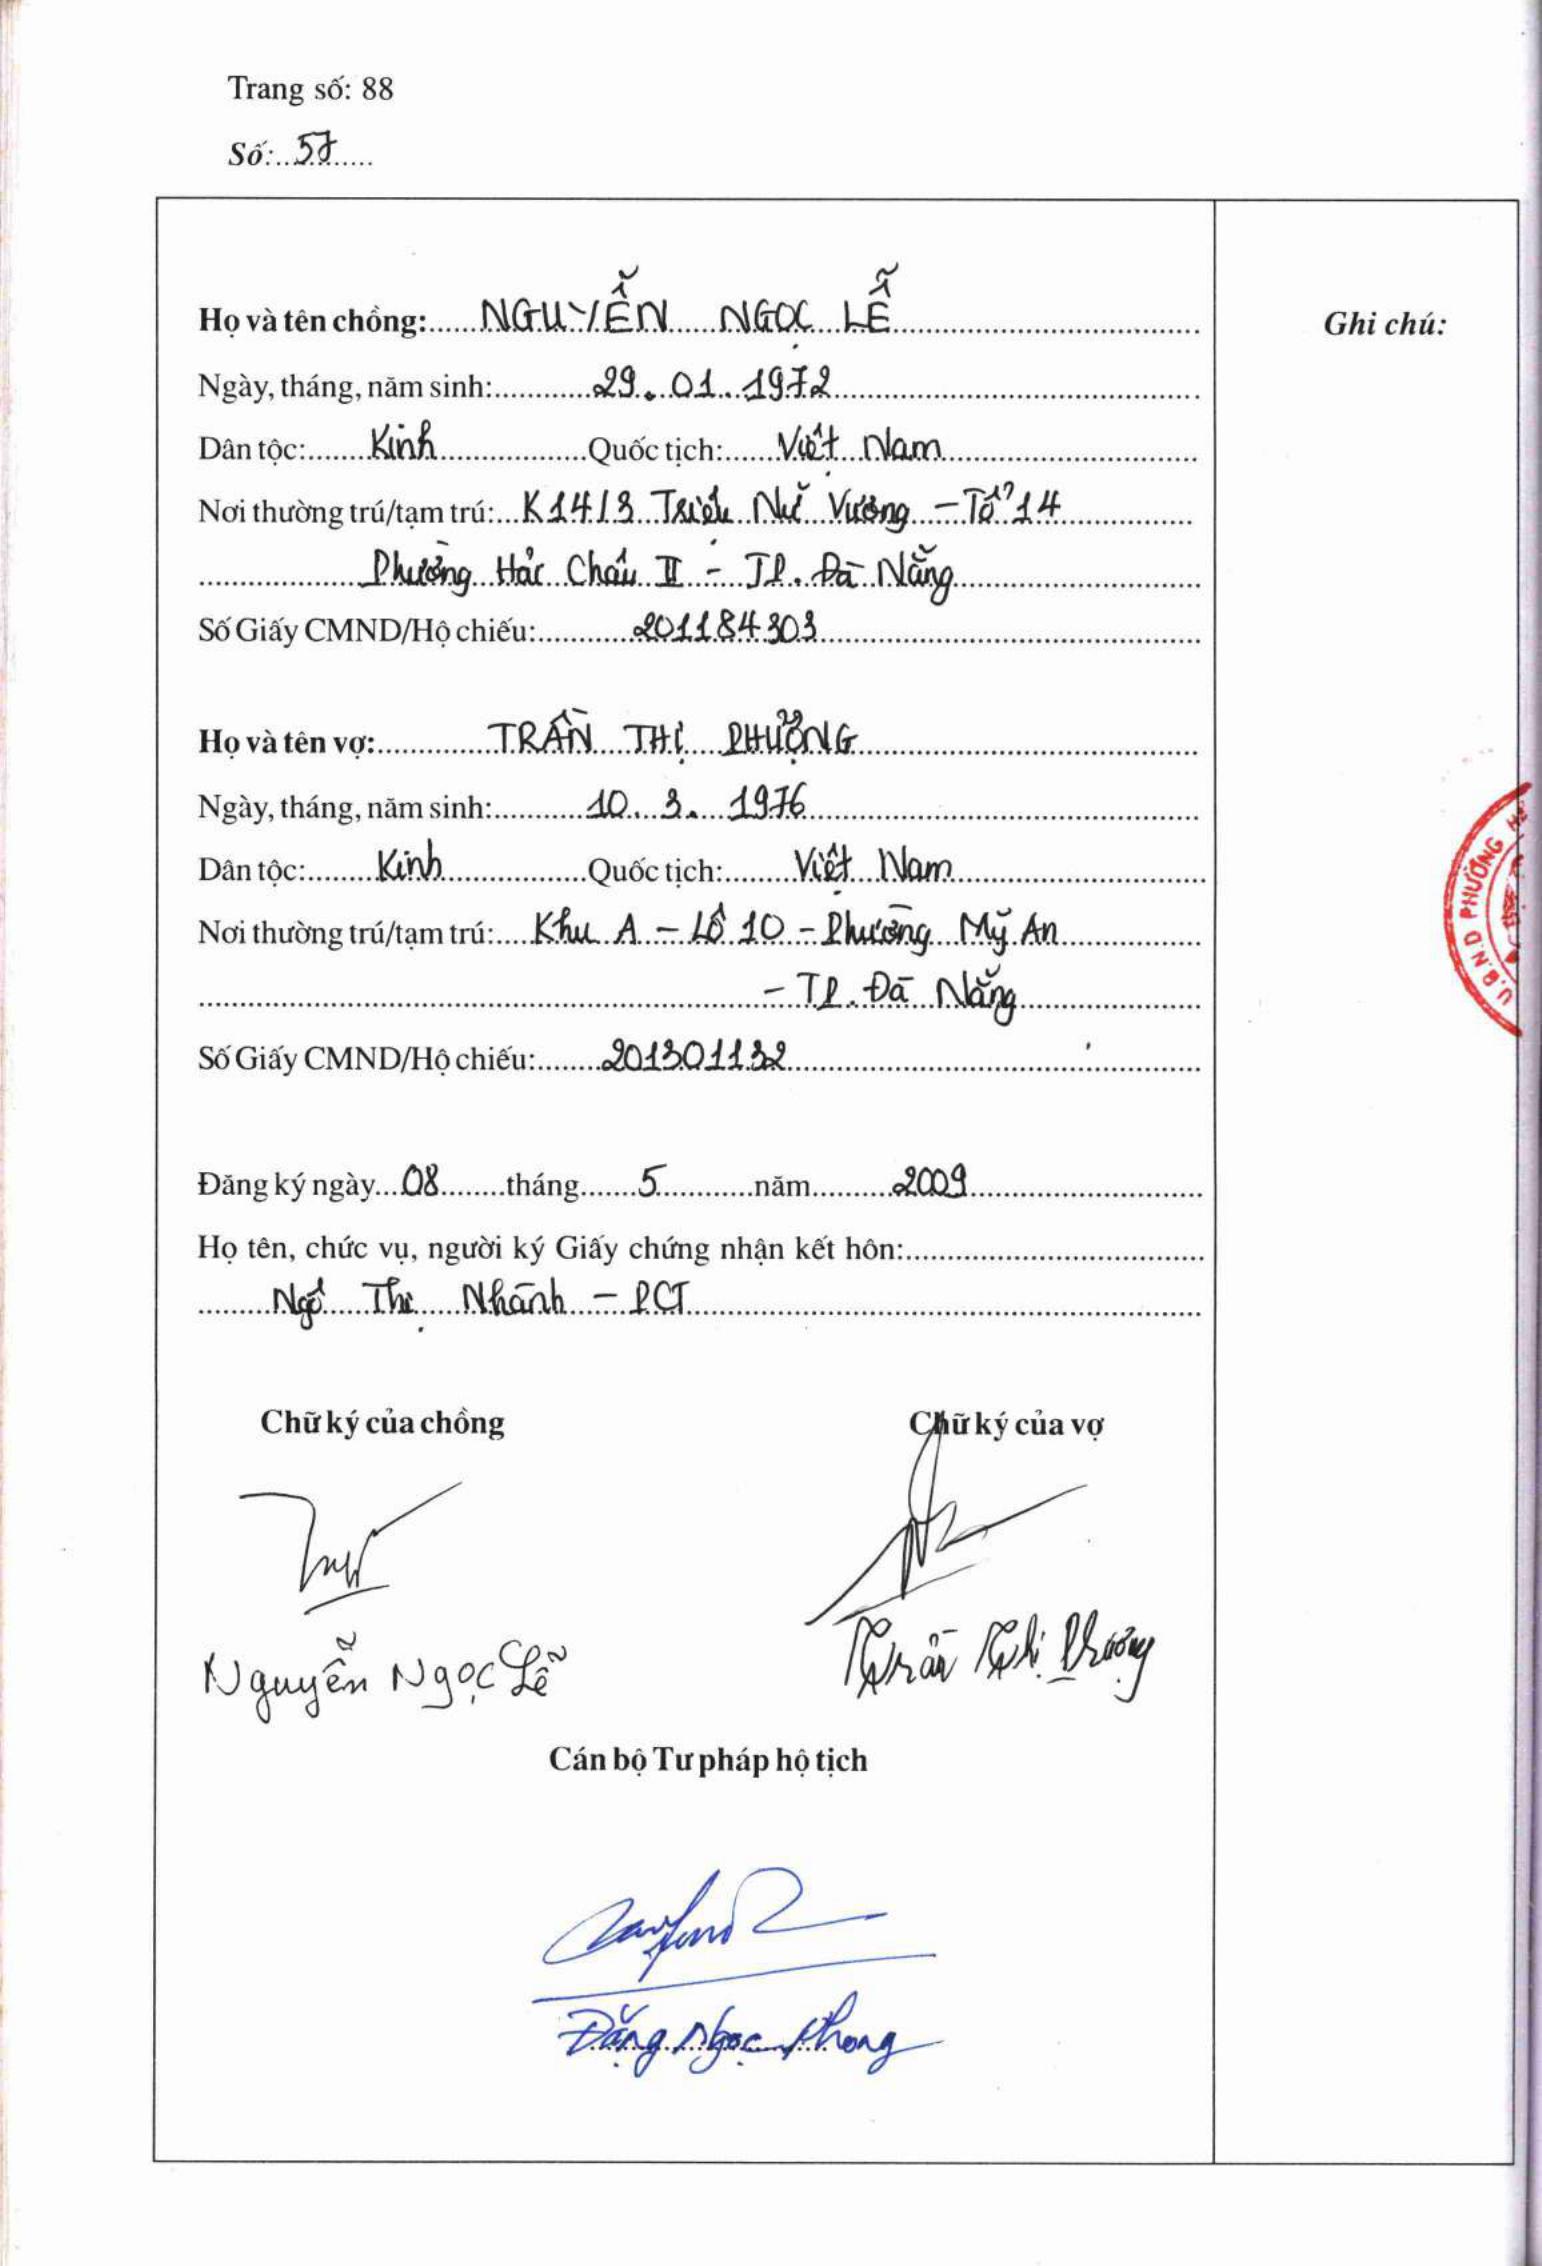 Trang số: 88
Số: 57
Họ và tên chồng: NGUYỄN NGỌC LỄ
Ghi chú:
Ngày, tháng, năm sinh: 29. 01. 1972
Dân tộc: Kinh Quốc tịch: Việt Nam
Nơi thường trú/tạm trú: K14/3 Triệu Nữ Vương - Tổ 14
Phường Hải Châu II - TP. Đà Nẵng
Số Giấy CMND/Hộ chiếu: 201184303
Họ và tên vợ: TRẦN THỊ PHƯỢNG
Ngày, tháng, năm sinh: 10. 3. 1976
Dân tộc: Kinh Quốc tịch: Việt Nam
Nơi thường trú/tạm trú: Khu A - Lô 10 - Phường Mỹ An
- TP. Đà Nẵng
Số Giấy CMND/Hộ chiếu: 201301132
U.B.N.D PHƯỜNG
Đăng ký ngày 08 tháng 5 năm 2009
Họ tên, chức vụ, người ký Giấy chứng nhận kết hôn:
Ngô Thị Nhành - PCT
Chữ ký của chồng Chữ ký của vợ
Nguyễn Ngọc Lễ Trần Thị Phượng
Cán bộ Tư pháp hộ tịch
Đặng Ngọc Phong